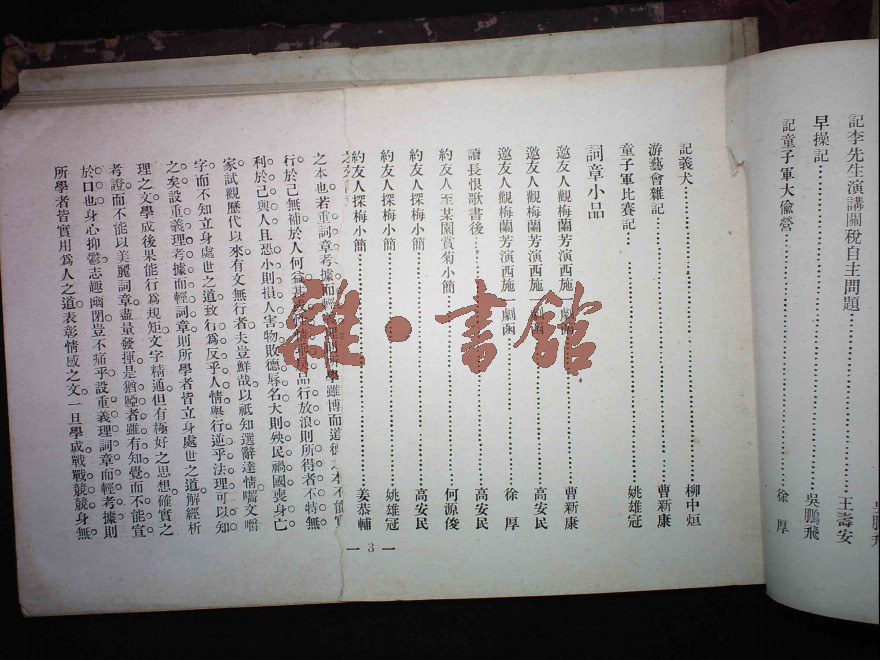 記李先生演講關稅自主問題……王壽安
早操記……吳鵬飛
記童子軍大偷營……徐 厚
記義犬……柳中烜
游藝會雜記……曹新康
童子軍比賽記……姚雄冠
詞章小品
邀友人觀梅蘭芳演西施一劇函……曹新康
邀友人觀梅蘭芳演西施一劇函……高安民
邀友人觀梅蘭芳演西施一劇函……徐 厚
讀長恨歌書後……高安民
約友人至某園賞菊小簡……何源俊
約友人探梅小簡……高安民
約友人探梅小簡……姚雄冠
約友人探梅小簡……姜恭輔
— 3 —
之本也。若重詞章考據而輕學雖博而道德之本不能
行於己無補於人何益甚品行放浪則所得者不特無
利於己與人且恐小則損人害物敗德辱名大則殃民禍國喪身亡
家試觀歷代以來有文無行者夫豈鮮哉以祇知選辭達情囑文嚼
字而不知立身處世之道致行為反乎人情與行逆乎法理可以知
之矣設重義理考據而輕詞章則所學者皆立身處世之道解經析
理之文學成後果能行為規矩文字精通但有極好之思想確實之
考證而不能以美麗詞章盡量發揮是猶啞者雖有知覺而不能宣
於口也身心抑鬱志趣幽閉豈不痛乎設重義理詞章而輕考據則
所學者皆實用為人之道表彰情感之文一旦學成戰戰兢兢身無
雜·書館